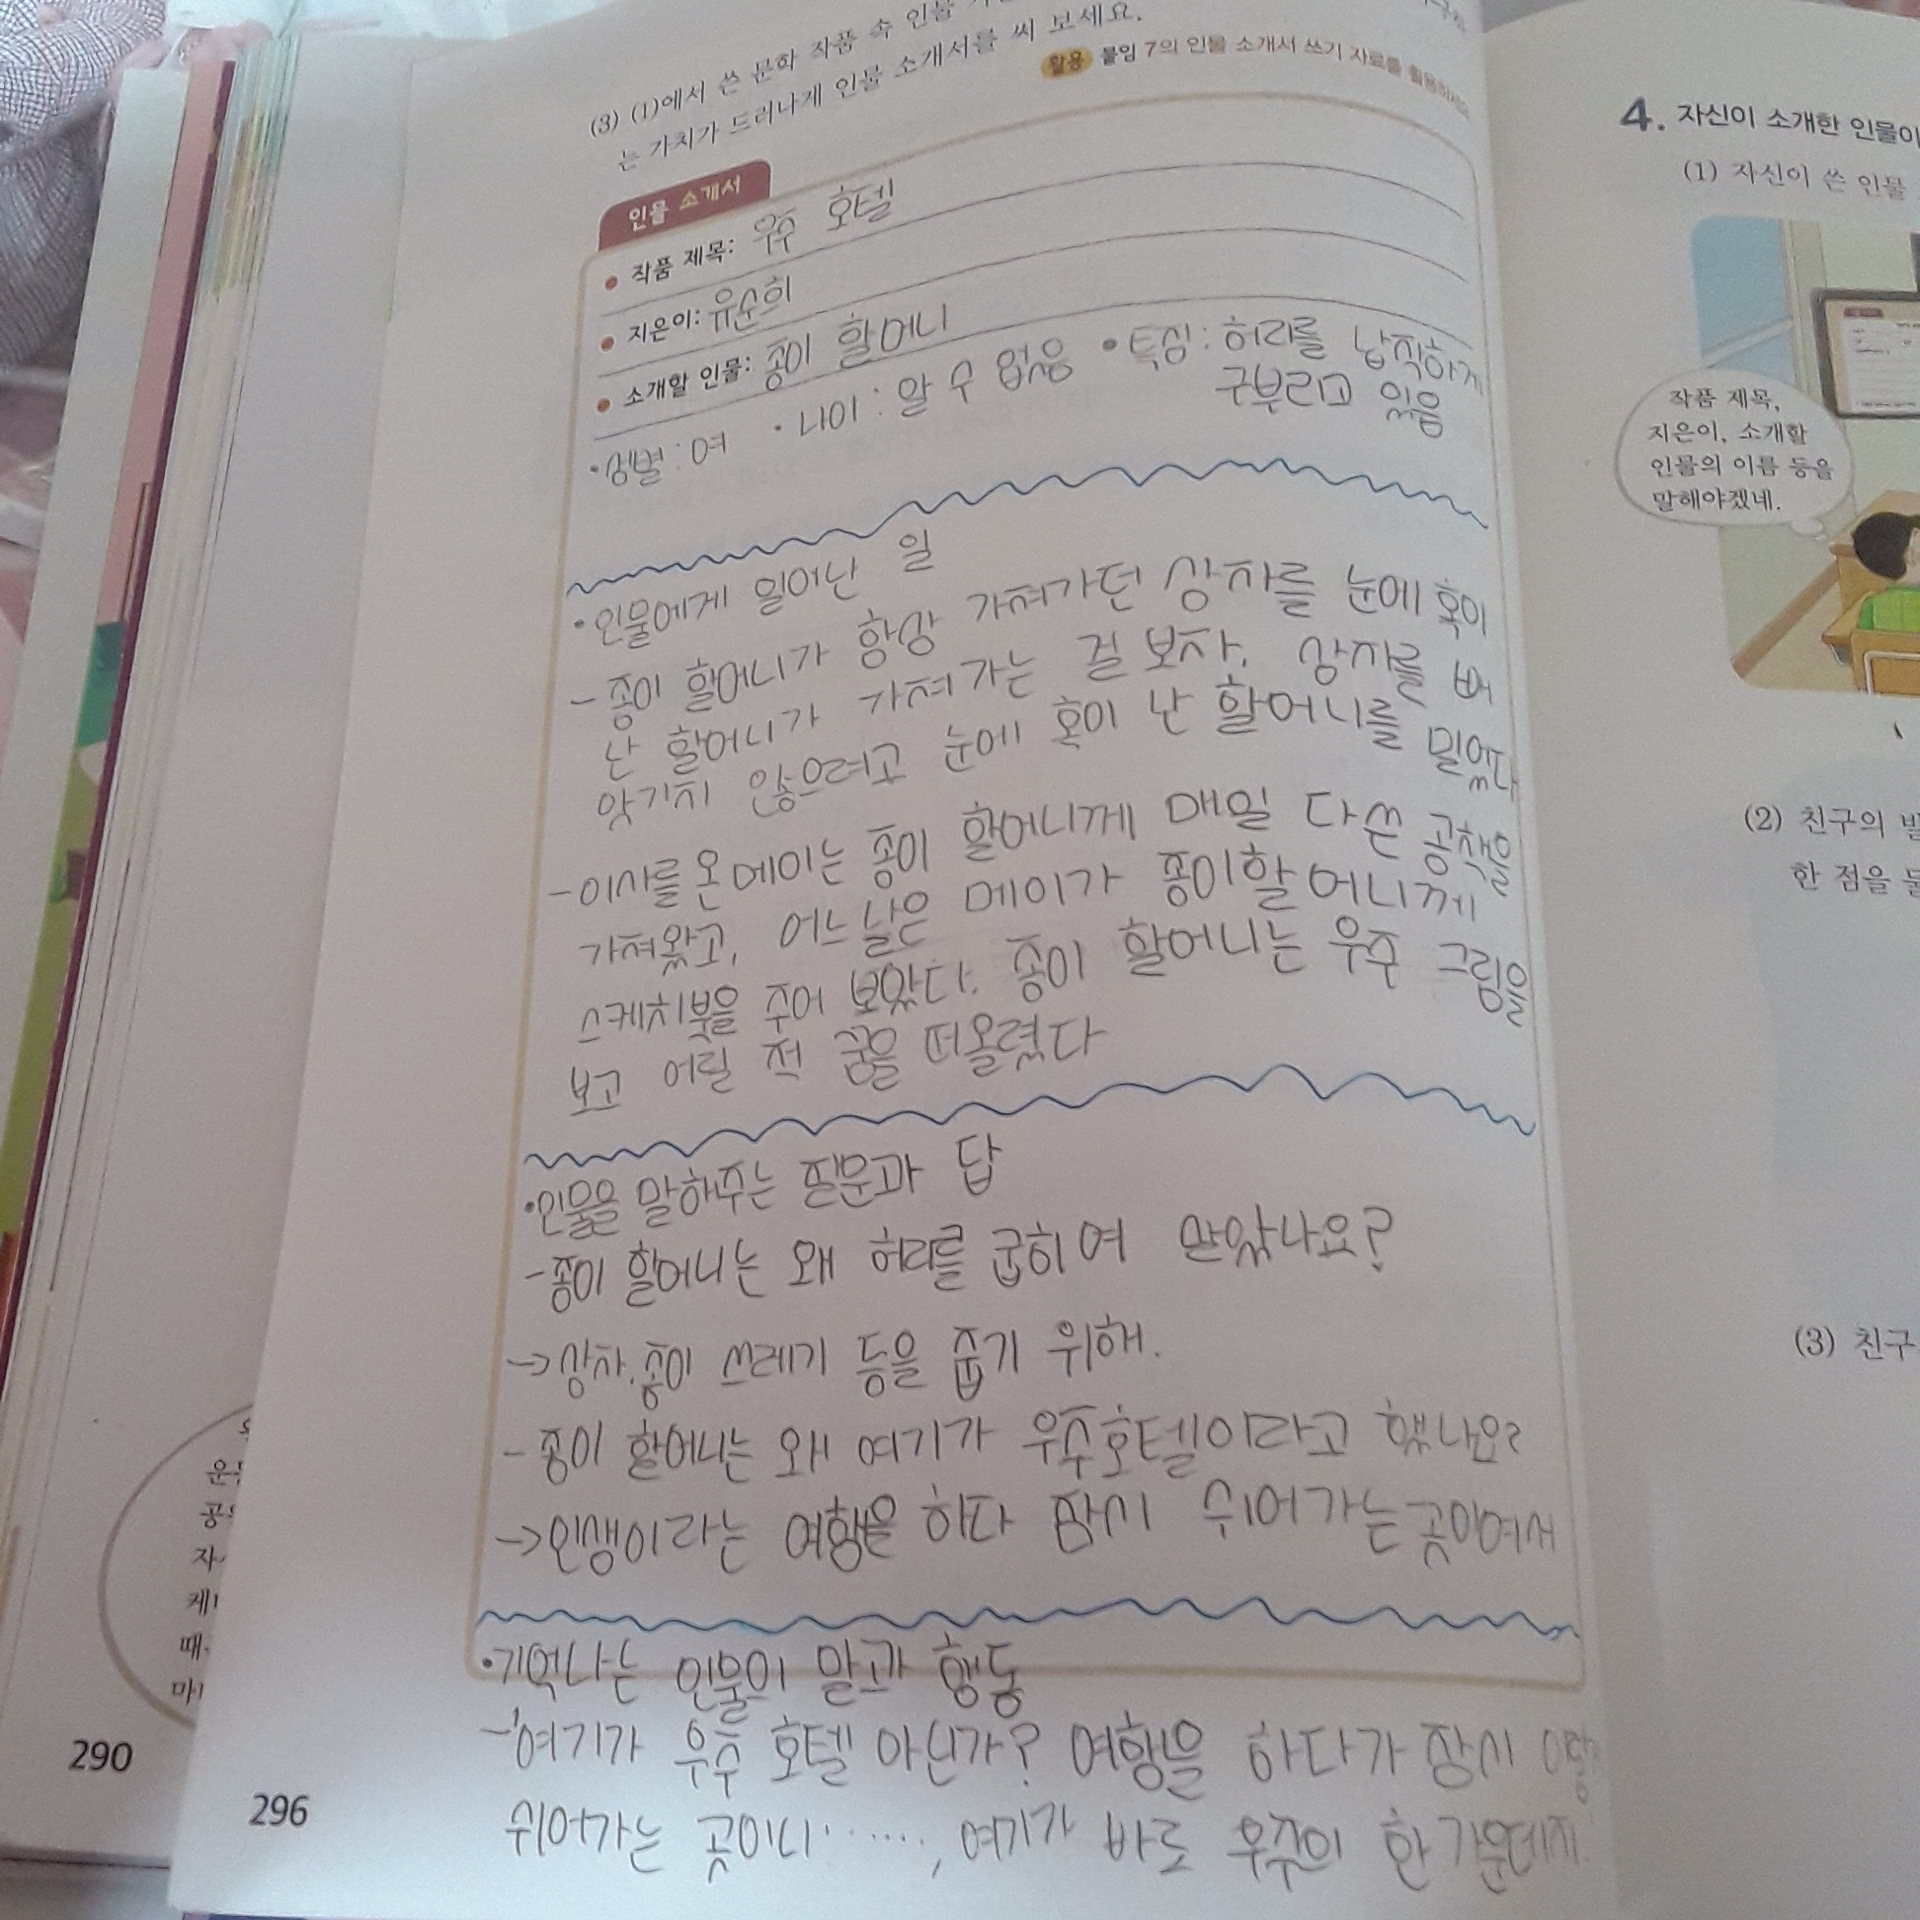 (3) (1)에서 쓴 문학 작품 속 인물
는 가치가 드러나게 인물 소개서를 써 보세요.
활용 붙임 7의 인물 소개서 쓰기 자료를 활용하세요.
인물 소개서
• 작품 제목: 우주 호텔
• 지은이: 유순희
• 소개할 인물: 종이 할머니
•성별:여 •나이: 알 수 없음 •특징: 허리를 납작하게
구부리고 있음
•인물에게 일어난 일
-종이 할머니가 항상 가져가던 상자를 눈에 혹이
난 할머니가 가져가는 걸 보자, 상자를 빼
앗기지 않으려고 눈에 혹이 난 할머니를 밀었다
-이사를 온 메이는 종이 할머니께 매일 다 쓴 공책을
가져왔고, 어느 날은 메이가 종이할머니께
스케치북을 주어 보았다. 종이 할머니는 우주 그림을
보고 어릴 적 꿈을 떠올렸다
•인물을 말해주는 질문과 답
-종이 할머니는 왜 허리를 굽히여 살았나요?
→상자.종이 쓰레기 등을 줍기 위해.
-종이 할머니는 왜 여기가 우주호텔이라고 했나요?
→인생이라는 여행을 하다 잠시 쉬어가는 곳이여서
•기억나는 인물의 말과 행동
-'여기가 우주 호텔 아닌가? 여행을 하다가 잠시
쉬어가는 곳이니······, 여기가 바로 우주의 한 가운데지.
290
296
4. 자신이 소개한 인물이
(1) 자신이 쓴 인물
작품 제목,
지은이, 소개할
인물의 이름 등을
말해야겠네.
(2) 친구의 발
한 점을
(3) 친구